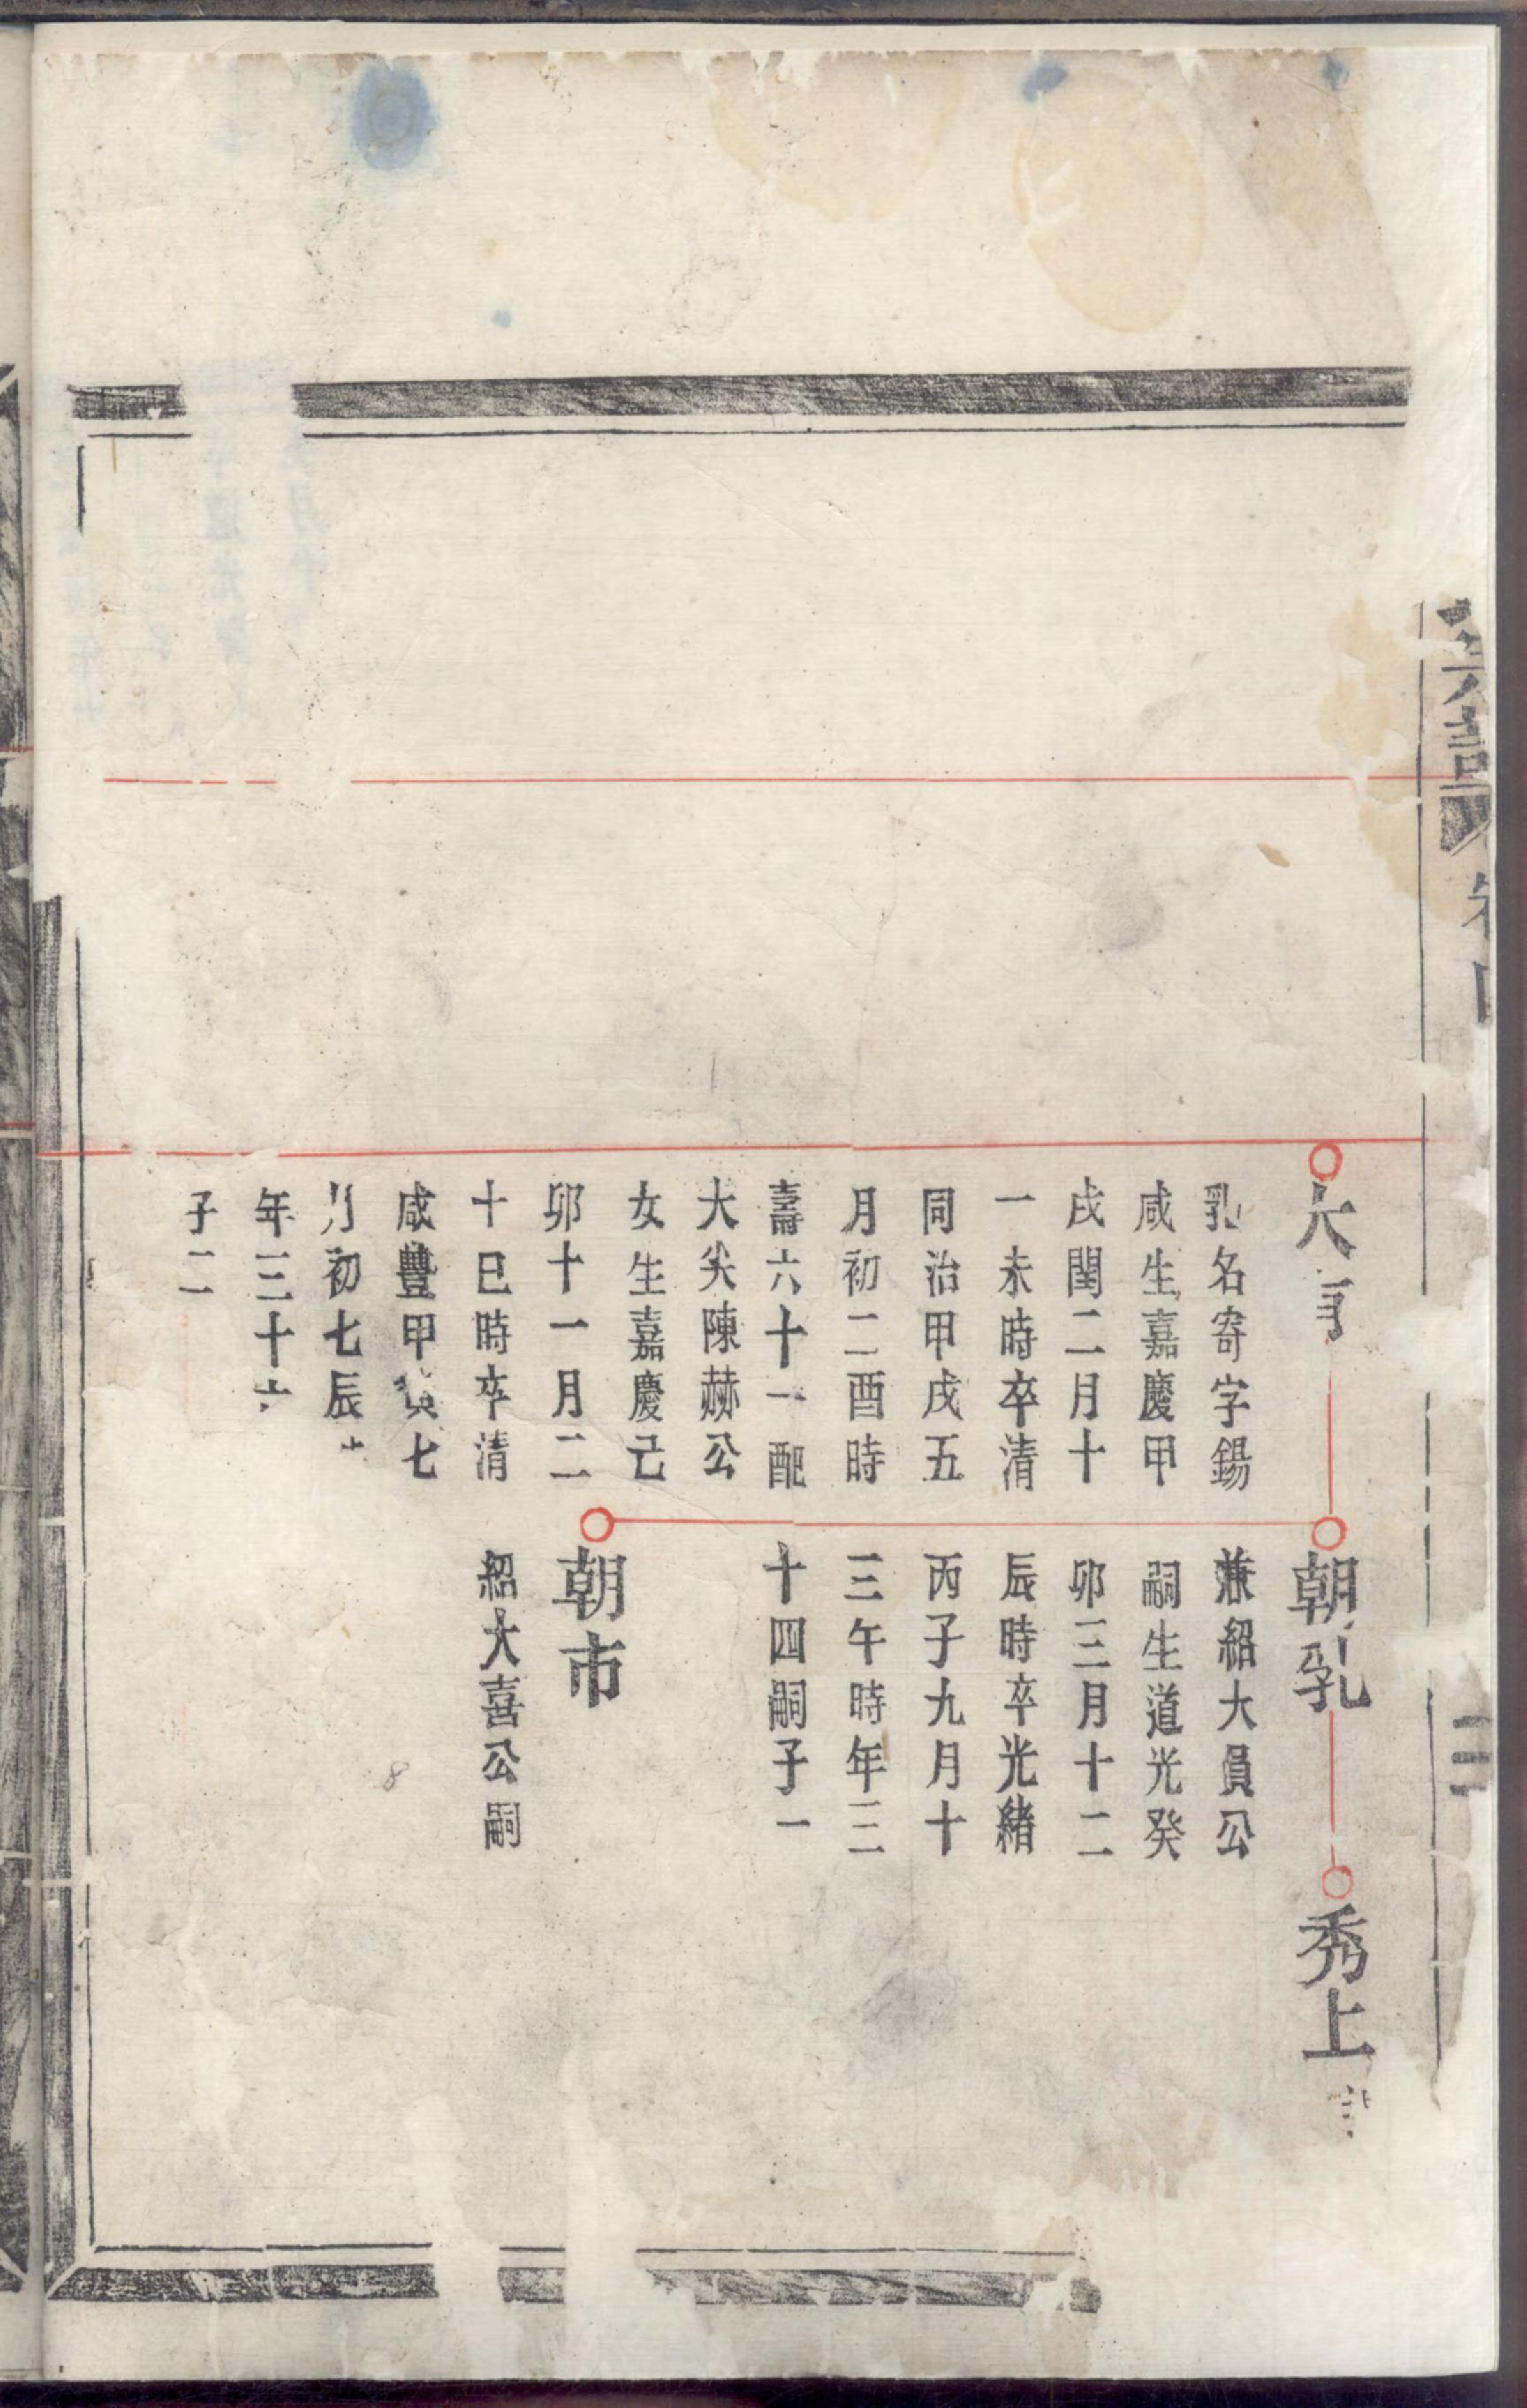 大
乳名寄字錫
咸生嘉慶甲
戌閏二月十
一未時卒清
同治甲戌五
月初二酉時
壽六十一配
大尖陳赫公
女生嘉慶己
卯十一月二
十巳時卒清
咸豐甲寅七
月初七辰
年三十六
子二
朝乳
兼紹大員公
嗣生道光癸
卯三月十二
辰時卒光緒
丙子九月十
三午時年三
十四嗣子一
朝市
紹大喜公嗣
秀上
三
8